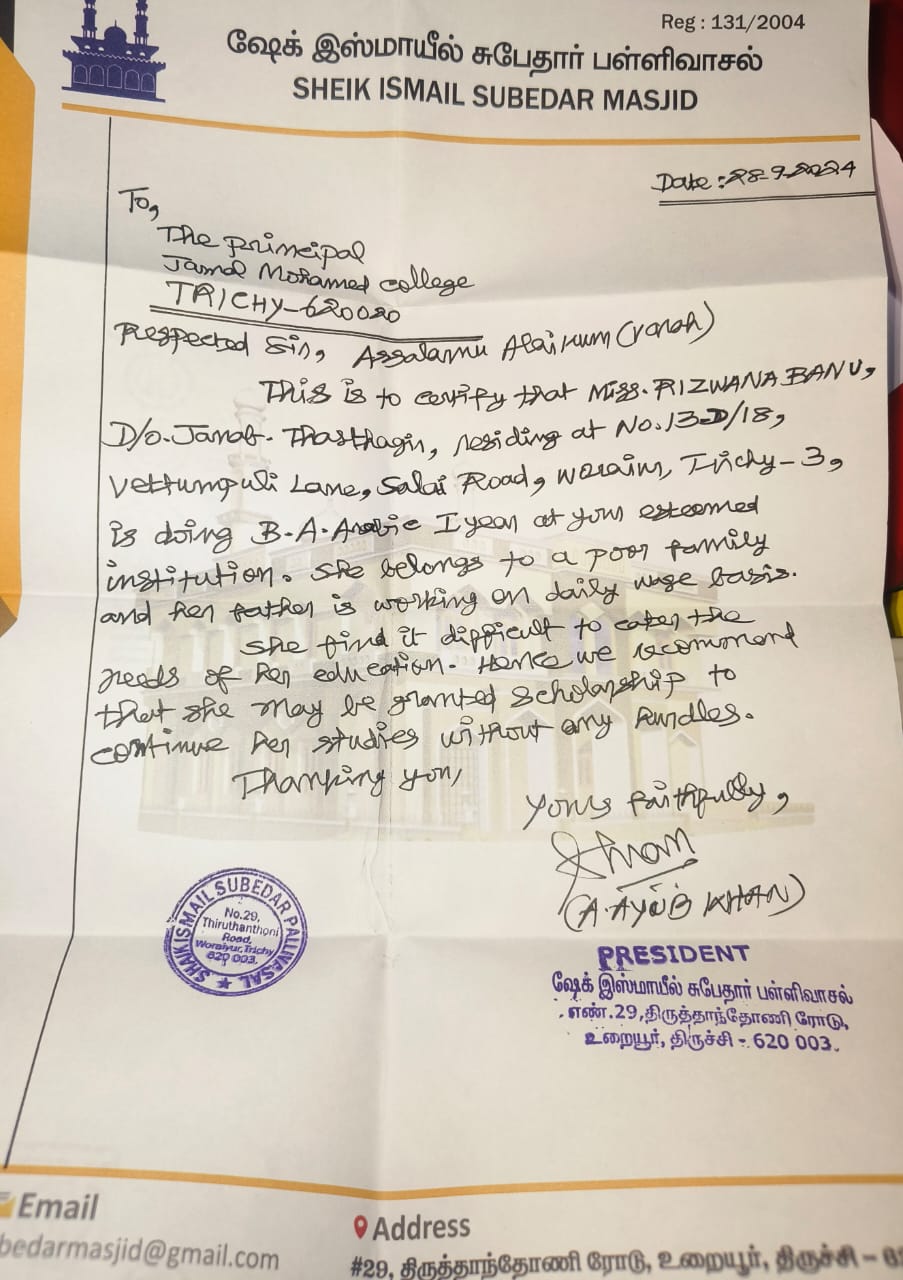 Reg : 131/2004
ஷேக் இஸ்மாயீல் சுபேதார் பள்ளிவாசல்
SHEIK ISMAIL SUBEDAR MASJID
Date : 28-9-2024
To,
The Principal
Jamal Mohamed College
TRICHY-620020
Respected Sir, Assalamu Alaikum (varah)
This is to certify that Miss. RIZWANA BANU,
D/o. Janab. Thasthagir, residing at No.13-D/18,
Vettumpuli Lane, Salai Road, Woraiur, Trichy-3,
is doing B.A. Arabic I year at your esteemed
institution. She belongs to a poor family
and her father is working on daily wage basis.
She find it difficult to cater the
needs of her education. Hence we recommend
that she may be granted scholarship to
continue her studies without any hurdles.
Thanking you,
Yours faithfully,
(A. AYUB KHAN)
SHAIK ISMAIL SUBEDAR PALLIVASAL
No.29,
Thiruthanthoni
Road,
Woraiyur, Trichy
620 003.
PRESIDENT
ஷேக் இஸ்மாயீல் சுபேதார் பள்ளிவாசல்
எண்.29,திருத்தாந்தோணி ரோடு,
உறையூர், திருச்சி - 620 003.
Email
bedarmasjid@gmail.com
Address
#29, திருத்தாந்தோணி ரோடு, உறையூர், திருச்சி - 6